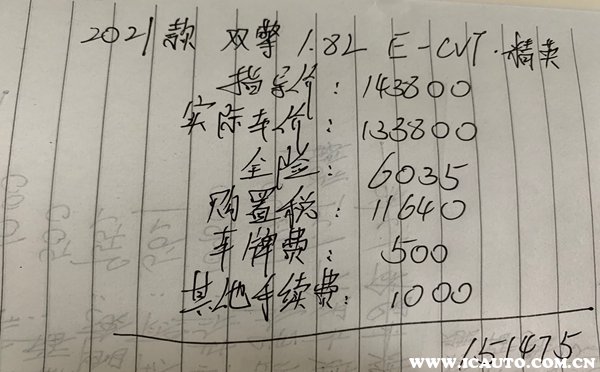 2021款 双擎 1.8L E-CVT·精英
指导价：143800
实际车价：133800
全险：6035
购置税：11640
车牌费：500
其他手续费：1000
151475
WWW.ICAUTO.COM.CN